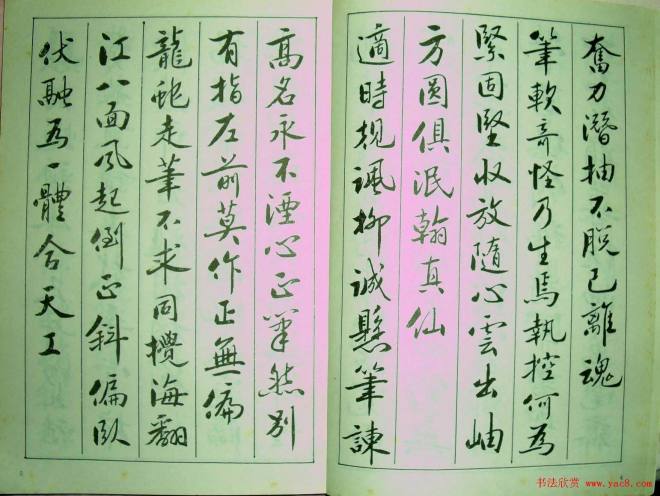 奮力潛抽不脫已離魂
筆軟奇怪乃生焉執控何為
緊固堅收放隨心雲出岫
方圓俱泯翰真仙
適時規諷柳誠懸筆諫
高名永不湮心正筆然別
有指左前莫作正無偏
龍蛇走筆不求同攪海翻
江八面風起倒正斜偏臥
伏融為一體合天工
书法欣赏 www.yac8.com